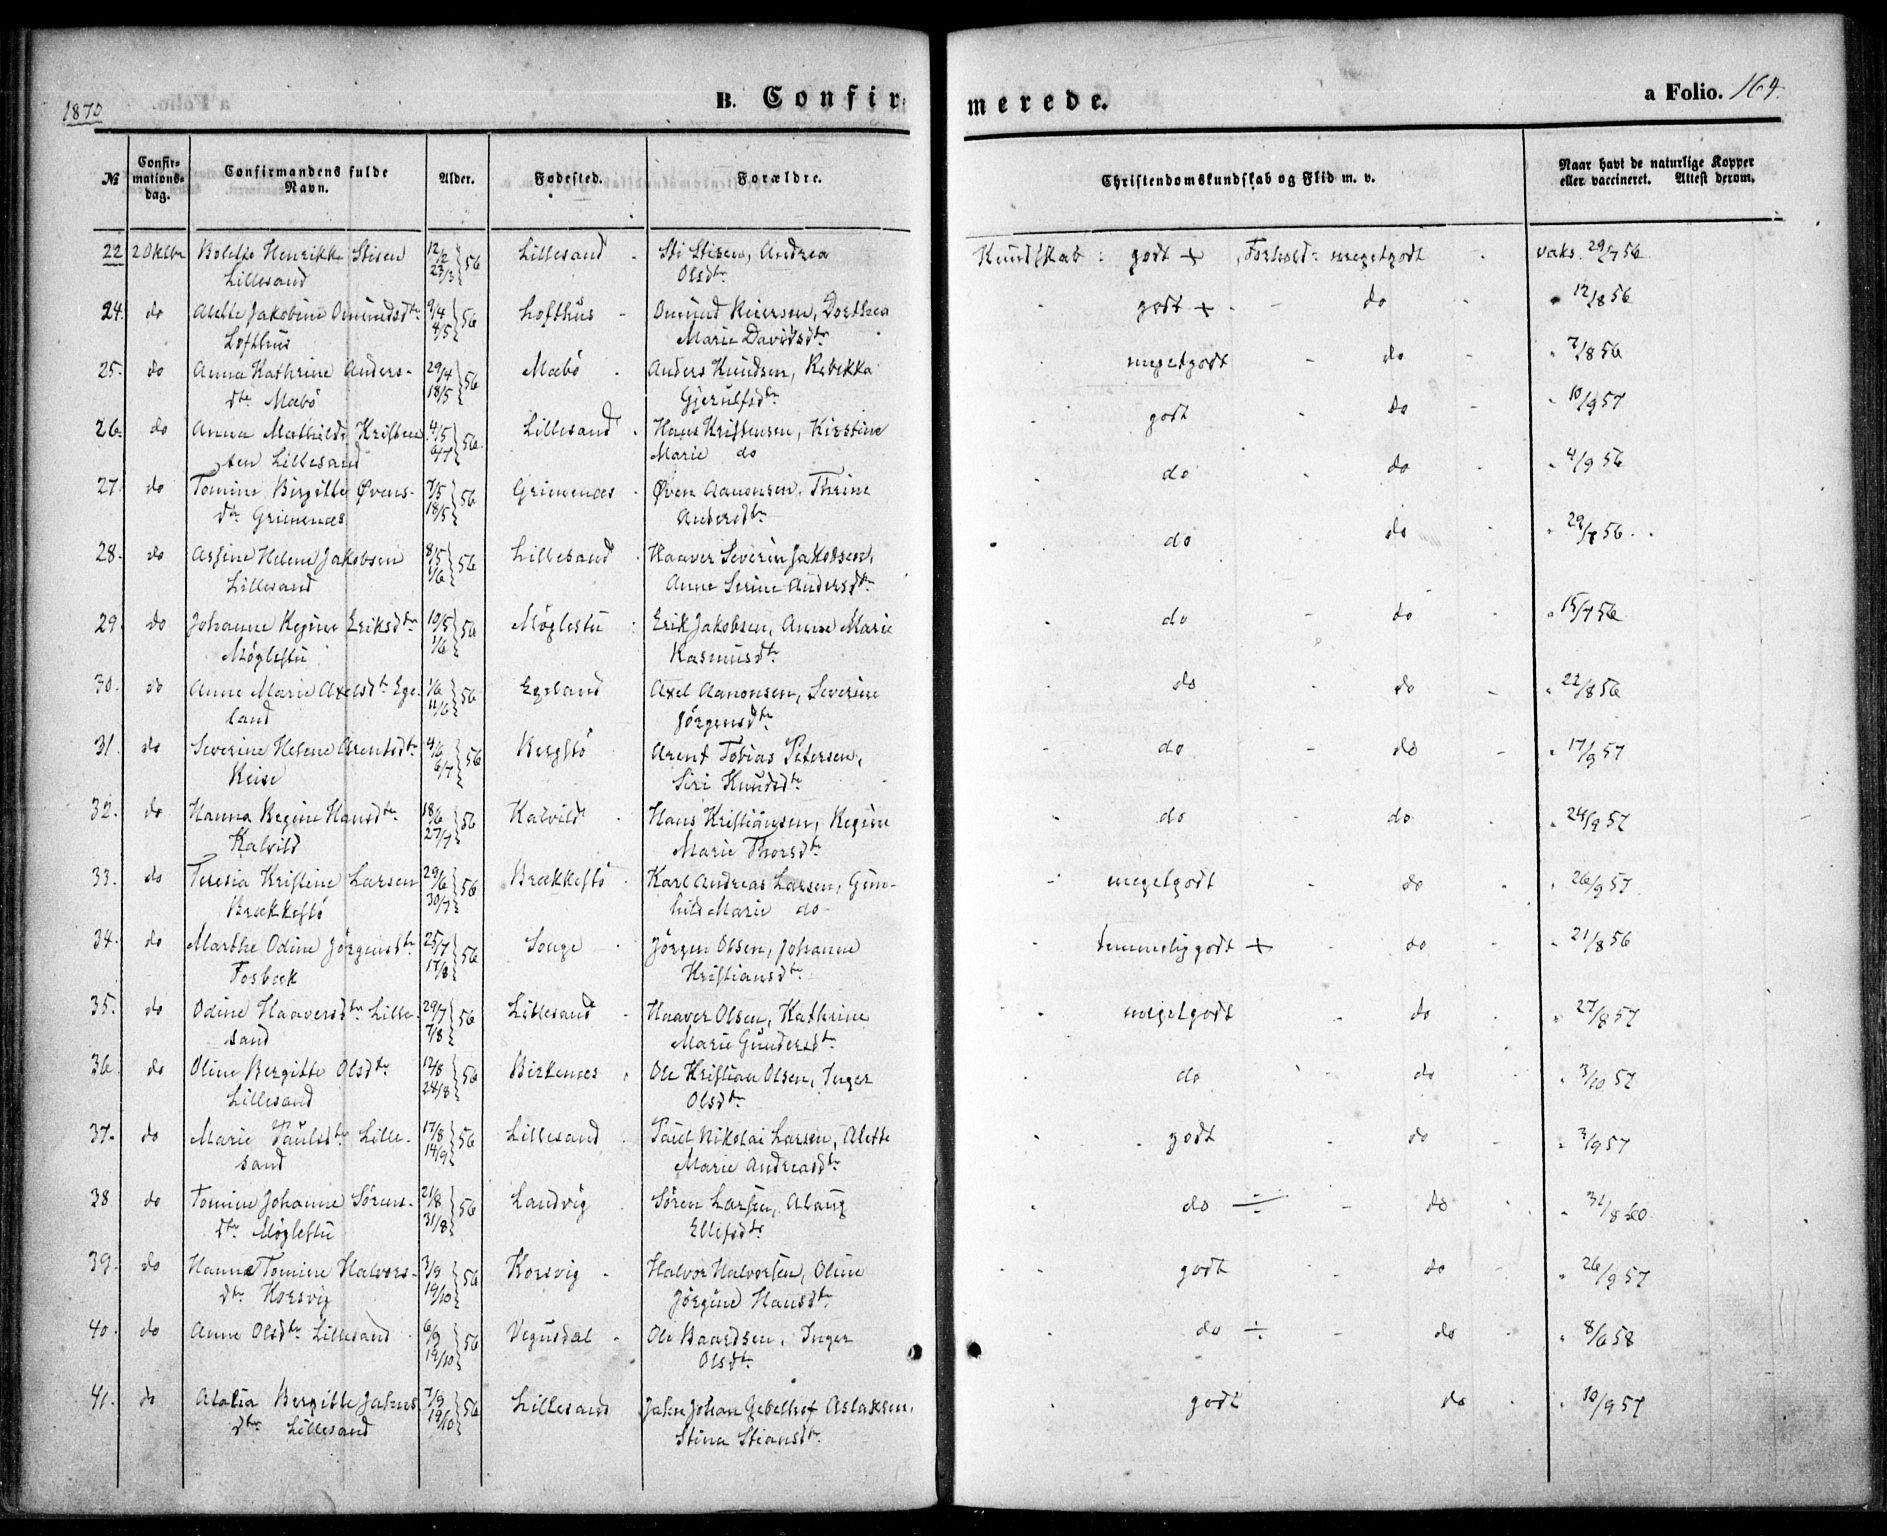 1870
B. Confir=
merede.
a Folio. 164.
№
Confir=
mations=
dag.
Confirmandens fulde
Navn.
Alder.
Fødested.
Forældre.
Christendomskundskab og Flid m. v.
Naar havt de naturlige Kopper
eller vaccineret. Attest derom.
22 2 Oktbr Henrikke Stisen 12/2 23/3 56 Lillesand Sti Stisen, Andrea Kundskab: godt + Forhold: megetgodt vaks. 29/7 56
Lillesand Olsdtr.
24. do Alette Jakobine Omundsdtr. 9/4 4/5 56 Lofthus Omund Reiersen, Dorthea godt + do 12/8 56
Lofthus Marie Davidsdtr
25. do Anna Kathrine Anders- 29/4 18/5 56 Mæbø Anders Knudsen, Rebikka megetgodt do 7/8 56
dtr. Mæbø Gjerulfsdtr
26. do Anna Mathilde Kristen 4/5 6/7 56 Lillesand Hans Kristensen, Kirstine godt do 10/9 57
sen Lillesand Marie do
27. do Tomine Birgitte Øvens- 7/5 18/5 56 Grimenæs Øven Aanonsen, Thrine do do 4/9 56
dtr Grimenæs Andersdtr
28. do Helene Jakobsen 8/5 1/6 56 Lillesand Haaver Severin Jakobsen, do do 29/7 56
Lillesand Anne Serine Andersdtr.
29. do Johanne Regine Eriksdtr 19/5 1/6 56 Møglestu Erik Jakobsen, Anne Marie do do 15/7 56
Møglestu Rasmusdtr.
30. do Anne Marie Axelsdtr Ege- 1/6 11/6 56 Egeland Axel Aanonsen, Severine do do 22/8 56
land Jørgensdtr
31. do Severine Helene Arentsdtr. 4/6 6/7 56 Bergstø Arent Tobias Petersen, do do 17/9 57
Reise Siri Knudsdtr
32. do Hanna Regine Hansdtr. 18/6 27/7 56 Kalvild Hans Kristiansen, Regine do do 24/9 57
Kalvild Marie Thorsdtr
33. do Teresia Kristine Larsen 29/6 30/7 56 Brækkestø Karl Andreas Larsen, Gun- megetgodt do 26/9 57
Brækkestø hild Marie do
34. do Marthe Odine Jørgensdtr. 25/7 17/8 56 Songe Jørgen Olsen, Johanne temmeliggodt + do 21/8 56
Fosbæk Kristiansdtr.
35. do Odine Haaversdtr Lille- 29/7 7/8 56 Lillesand Haaver Olsen, Kathrine megetgodt do 27/8 57
sand Marie Gundersdtr
36. do Oline Bergitte Olsdtr. 12/8 24/8 56 Birkenes Ole Kristian Olsen, Inger do do 3/10 57
Lillesand Olsdtr.
37. do Marie Paulsdtr Lille- 17/8 14/9 56 Lillesand Paul Nikolai Larsen, Alette godt do 3/9 57
sand Marie Andreasdtr
38 do Tomine Johanne Sørens- 21/8 31/8 56 Landvig Søren Larsen, Aslaug do ÷ do 31/8 60
dtr. Møglestu Ellefsdtr
39. do Hanna Tomine Halvors- 3/9 19/10 56 Korsvig Halvor Halvorsen, Oline godt do 26/9 57
dtr. Korsvig Jørgine Hansdtr.
40. do Anne Olsdtr Lillesand 6/9 19/10 56 Vegusdal Ole Baardsen, Inger do ÷ do 8/6 58
Olsdtr.
41. do Alalia Bergitte Jahns 7/9 19/10 56 Lillesand Jahn Johan Aslaksen, godt do 10/9 57
dtr Lillesand Stina Stiansdtr.